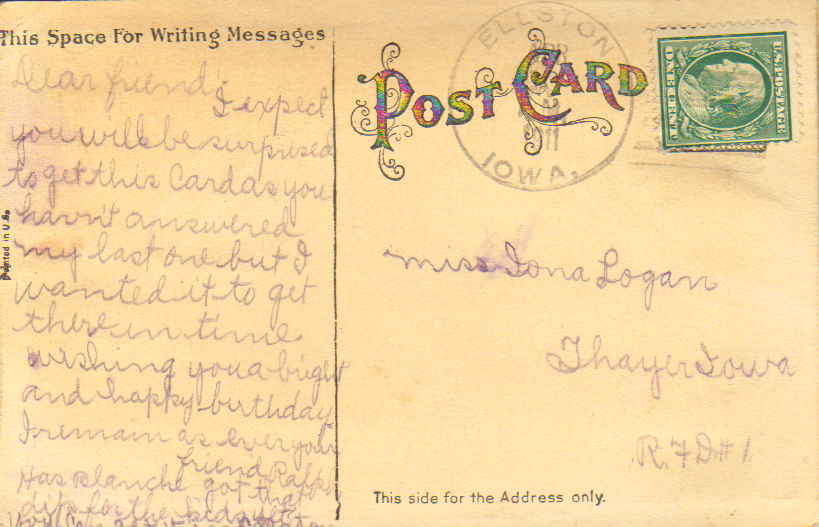 This Space For Writing Messages
Dear friend;
I expect
you will be surprised
to get this Card as you
havn't answered
my last one but I
wanted it to get
there in time
wishing you a bright
and happy birthday
I remain as ever your
friend
Has Blanche got that
for the
POST CARD
ELLSTON
1911
IOWA.
U.S. POSTAGE
ONE CENT
Miss Iona Logan
Thayer Iowa
R.F.D #1
This side for the Address only.
Printed in U.S.